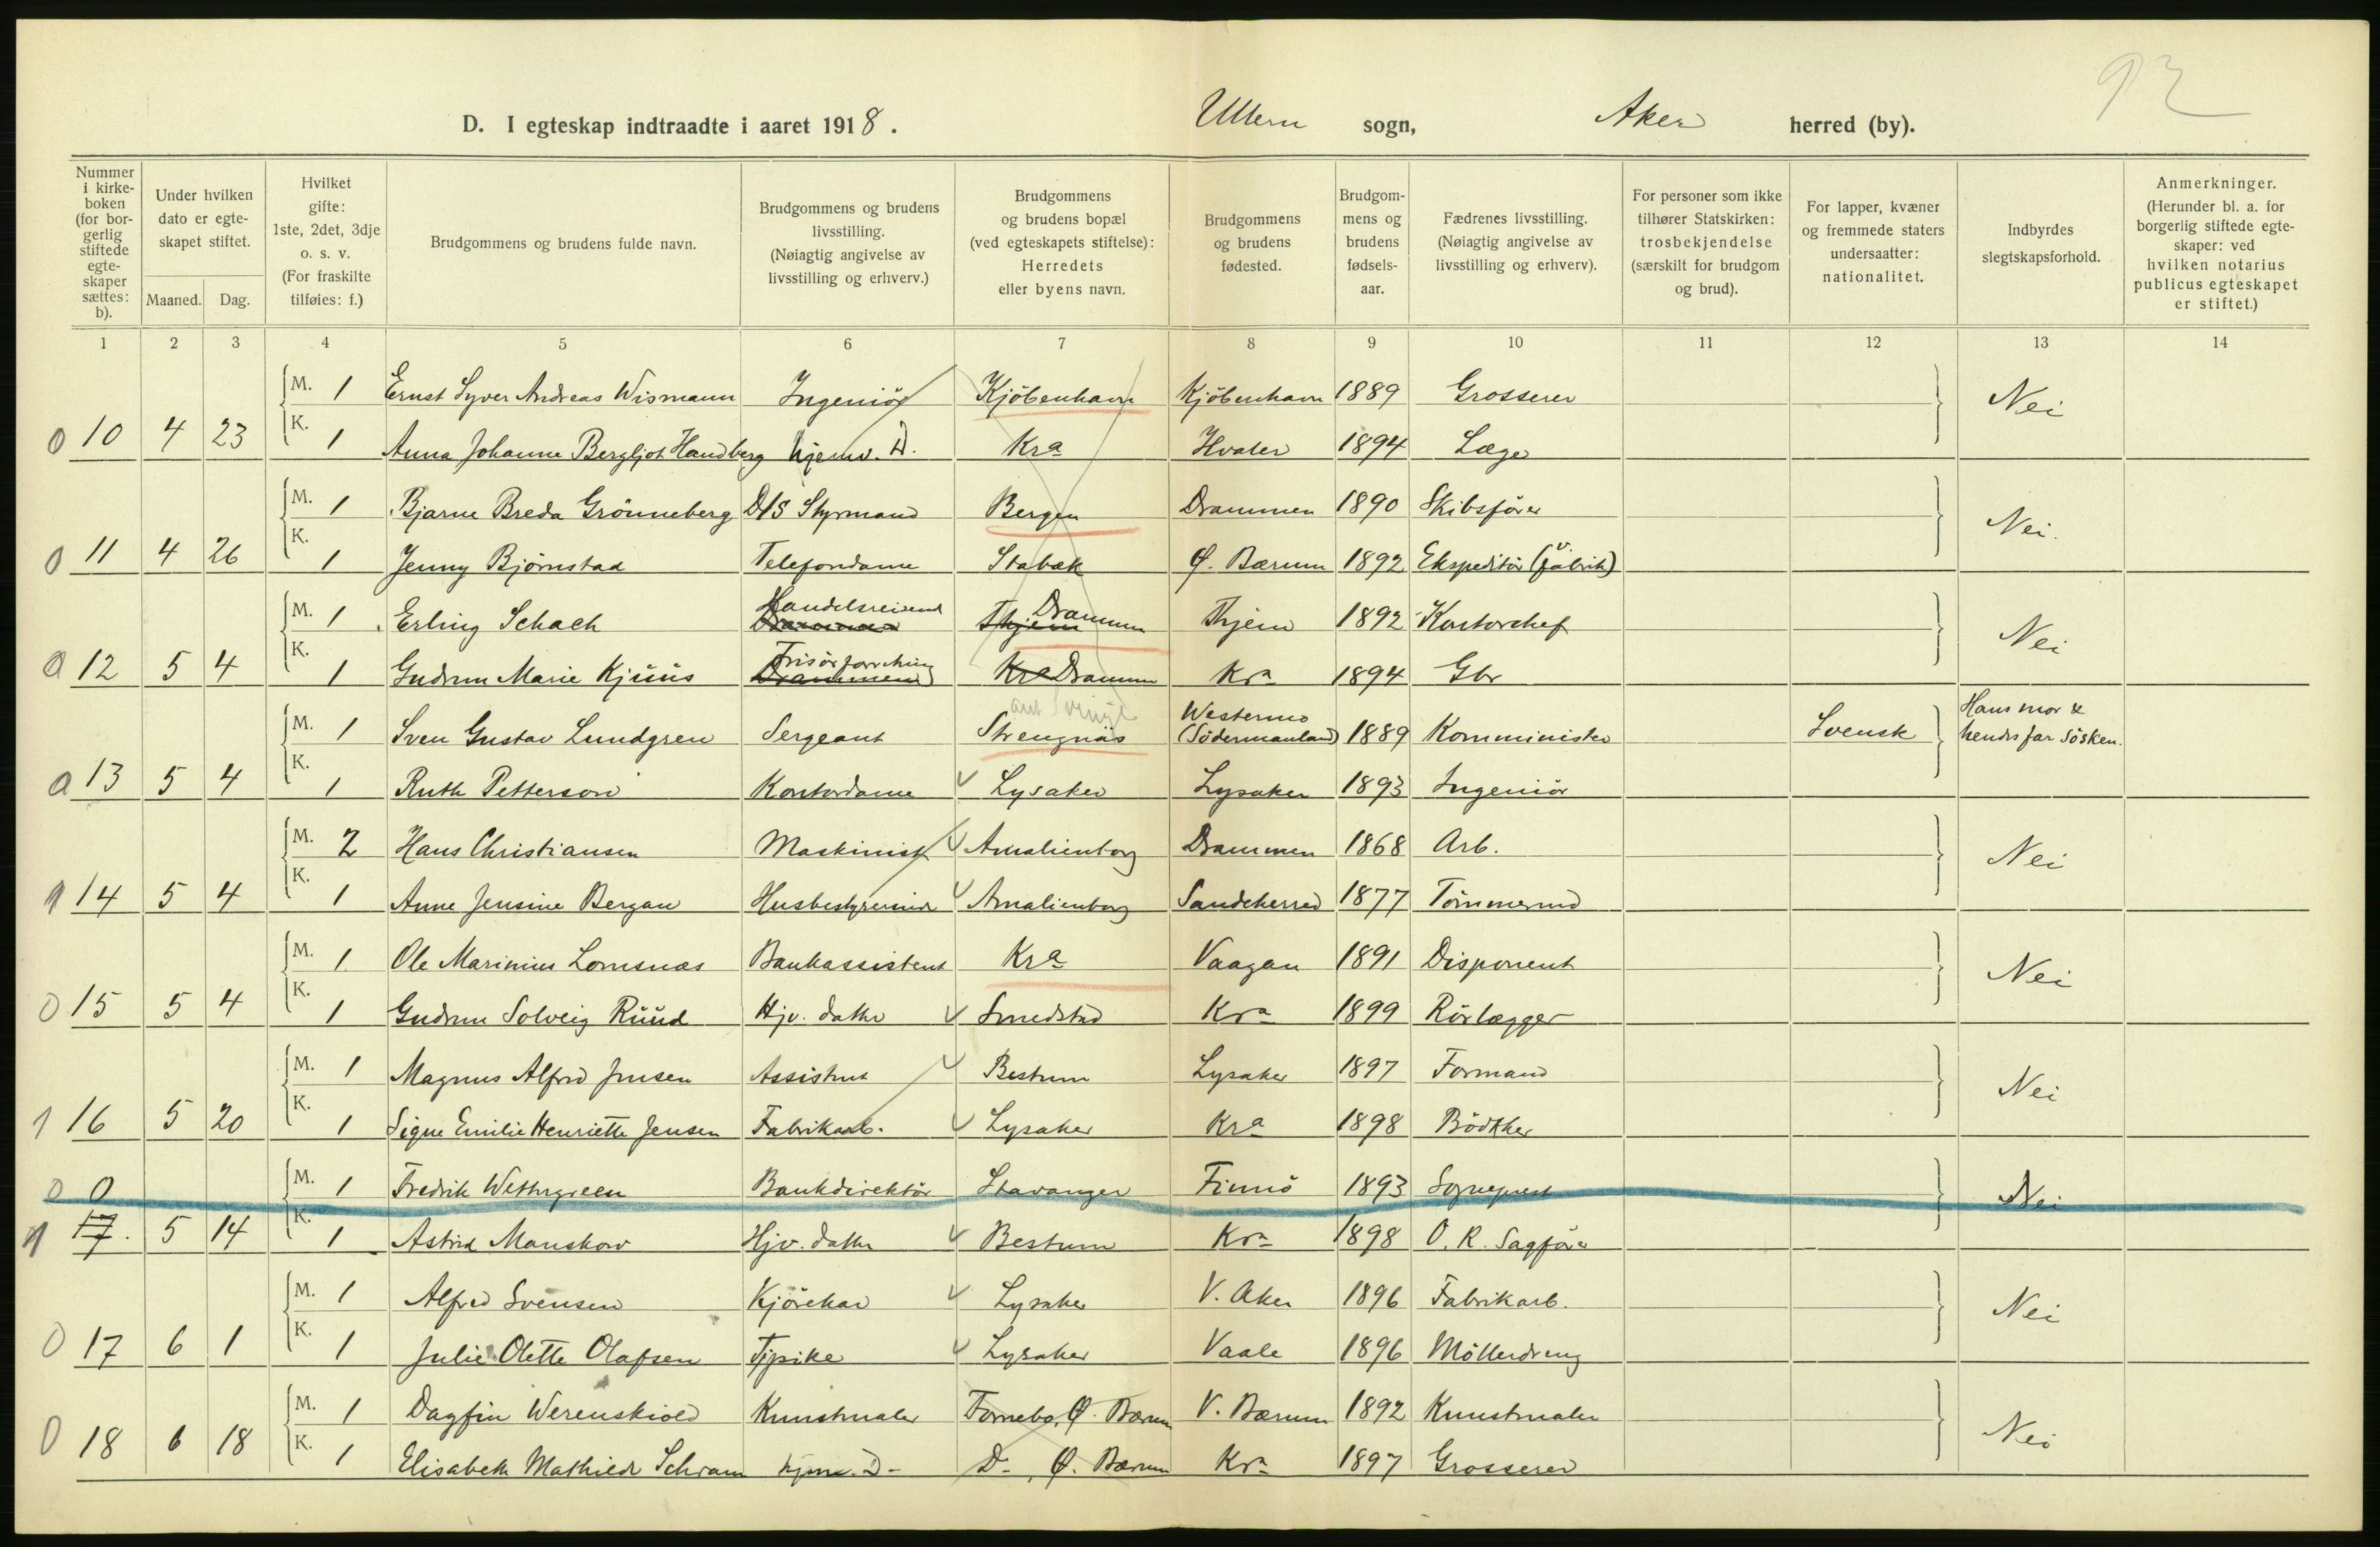 92
D. I egteskap indtraadte i aaret 1918. Ullern sogn, Aker herred (by).
Nummer i kirke-boken (for bor-gerlig stiftede egte-skaper sættes: b).
Under hvilken dato er egte-skapet stiftet.
Maaned. Dag.
Hvilket gifte: 1ste, 2det, 3dje o. s. v. (For fraskilte tilføies: f.)
Brudgommens og brudens fulde navn.
Brudgommens og brudens livsstilling. (Nøiagtig angivelse av livsstilling og erhverv.)
Brudgommens og brudens bopæl (ved egteskapets stiftelse): Herredets eller byens navn.
Brudgommens og brudens fødested.
Brudgom-mens og brudens fødsels-aar.
Fædrenes livsstilling. (Nøiagtig angivelse av livsstilling og erhverv).
For personer som ikke tilhører Statskirken: trosbekjendelse (særskilt for brudgom og brud).
For lapper, kvæner og fremmede staters undersaatter: nationalitet.
Indbyrdes slegtskapsforhold.
Anmerkninger. (Herunder bl. a. for borgerlig stiftede egte-skaper: ved hvilken notarius publicus egteskapet er stiftet.)
1 2 3 4 5 6 7 8 9 10 11 12 13 14
M. 1 Ernst Syver Andreas Wismann Ingeniör Kjöbenhavn Kjöbenhavn 1889 Grosserer Nei
0 10 4 23 K. 1 Anna Johanne Bergljot Handberg hjemv. D. Kra Hvaler 1894 Læge
M. 1 Bjarne Breda Grönneberg D/S Styrmand Bergen Drammen 1890 Skibsförer Nei.
0 11 4 26 K. 1 Jenny Björnstad Telefondame Stabæk Ø. Bærum 1892 Ekspeditör (fabrik)
M. 1 Erling Schach Handelsreisend Drammen Thjem 1892 Kontorchef Nei
0 12 5 4 K. 1 Gudrun Marie Kjuus Kra Drammen Kra 1894 Gbr
M. 1 Sven Gustav Lundgren Sergeant Strengnäs Westermo (Södermanland) 1889 Komminister Svensk Hans mor & hendes far Sösken.
0 13 5 4 K. 1 Ruth Petterson Kontordame Lysaker Lysaker 1893 Ingeniör
M. 2 Hans Christiansen Maskinist Amalienborg Drammen 1868 Arb. Nei
1 14 5 4 K. 1 Anne Jensine Bergan Husbestyrerinde Amalienborg Sandeherred 1877 Tömmermd
M. 1 Ole Marinius Lomsnæs Bankassistent Kra Vaagan 1891 Disponent Nei
0 15 5 4 K. 1 Gudrun Solveig Ruud Hjv. datter Smedstad Kra 1899 Rörlægger
M. 1 Magnus Alfred Jensen Assistent Bestum Lysaker 1897 Formand Nei
1 16 5 20 K. 1 Signe Emilie Henriette Jensen Fabrikarb. Lysaker Kra 1898 Bödtker
0 0 M. 1 Fredrik Wettergreen Bankdirektör Stavanger Finnö 1893 Sogneprest Nei
1 17. 5 14 K. 1 Astrid Manskow Hjv. datter Bestum Kra 1898 O. R. Sagförer
M. 1 Alfred Svensen Kjörekar Lysaker V. Aker 1896 Fabrikarb. Nei
0 17 6 1 K. 1 Julie Olette Olafsen Tjpike Lysaker Vaale 1896 Möllerdreng
M. 1 Dagfin Werenskiold Kunstmaler Fornebo, Ø. Bærum V. Bærum 1892 Kunstmaler Nei
0 18 6 18 K. 1 Elisabeth Mathilde Schram hjmv. D- D-, Ø. Bærum Kra 1897 Grosserer